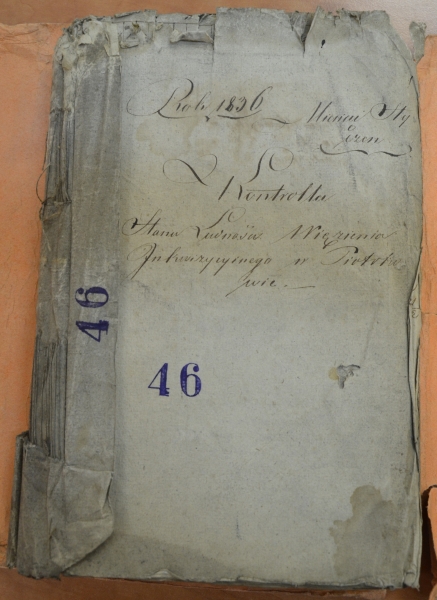 Rok 1836
Miesiąc Sty-
czeń
Kontrolla
Stanu Ludności Więzienia
Inkwizycyjnego w Piotrko
wie.
46
46